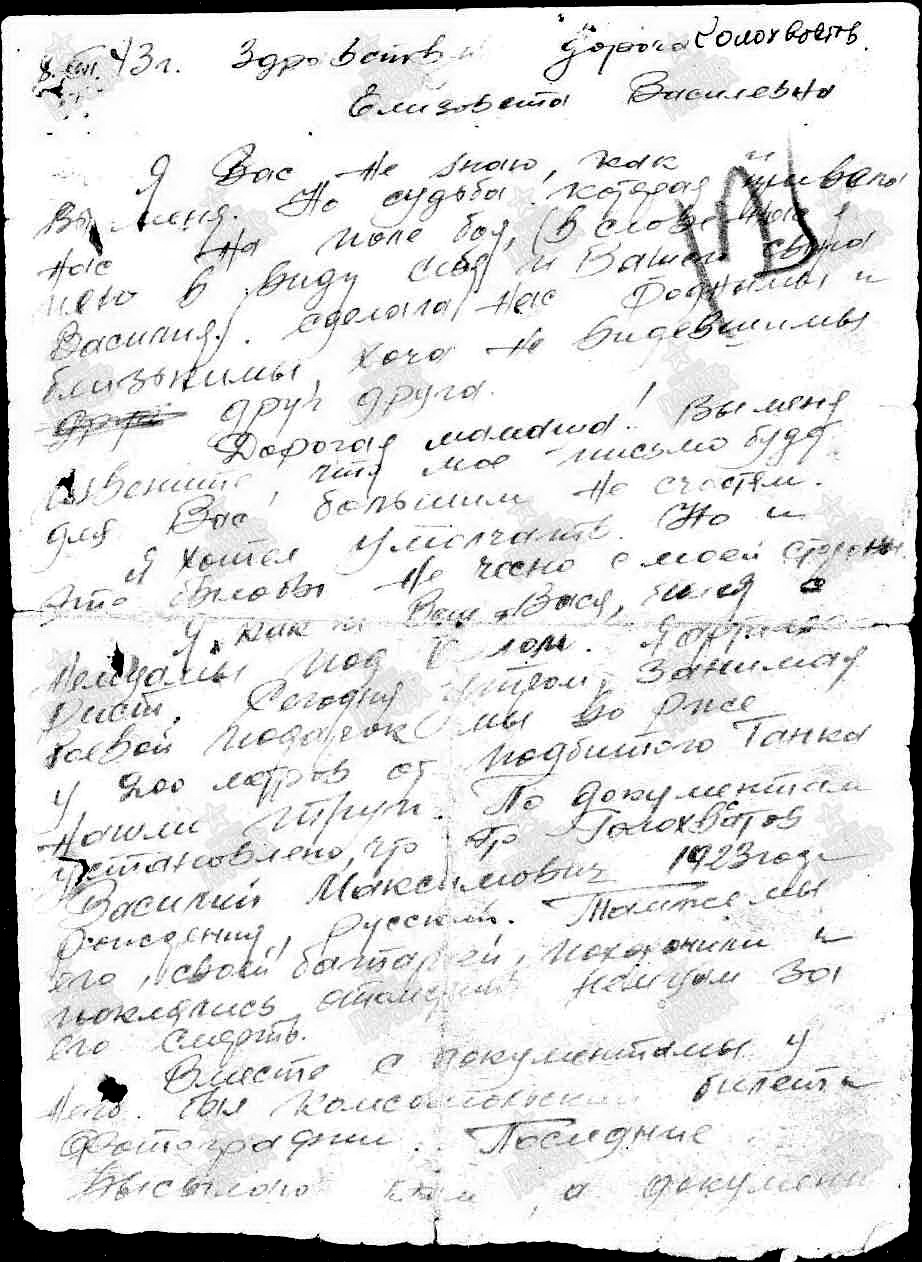 43г. Здравствуй дорога Голохвастов.
Елизовета Василевна
Я Вас не знаю, как и
Вы меня. Но судьба которая
нас на поле боя, (в слове нас я
мею в виду себя и Вашего сына
Василия). сделала нас родными и
близькимы, хоча не видевшимы
друг друга.
Дорогая мамаша! Вы меня
извените, что мое письмо буде
для Вас большим не счастям.
Я хотел умолчать. Но и
это былобы не чесно с моей стороны.
Я, как и Ваш Вася, бился с
Немцамы под лом. Я артиле
рист. Сегодня утром, занимая
боевой порядок мы во рже
у 200 метров от подбитого Танка
нашли труп. По документам
установлено, что гр. Голохватов
Василий Максимович 1923 года
рождения, русский. Тамже мы
его, своей батареей, похоронили и
поклялись отомстить немцам за
его смерть.
Вместе с документамы у
него был комсомольский билет и
фотографии. Последние
высылаю Вам, а документ